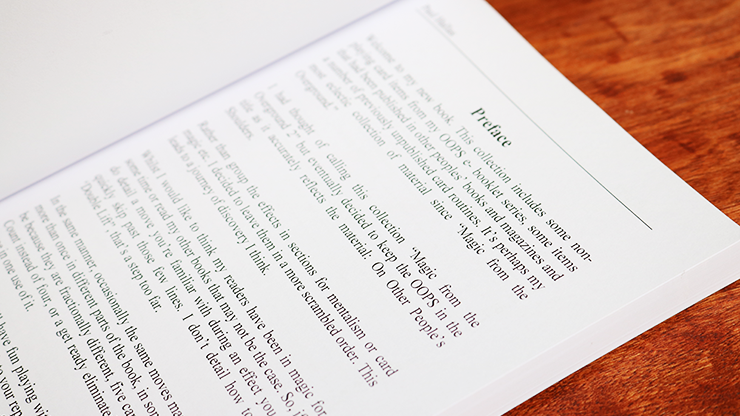 Paul Hallas
Preface
Welcome to my new book. This collection includes some non-
playing card items from my OOPS e- booklet series, some items
that had been published in other peoples' books and magazines and
a number of previously unpublished card routines. It's perhaps my
most eclectic collection of material since "Magic from the
Overground."
I had thought of calling this collection "Magic from the
Overground 2" but eventually decided to keep the OOPS in the
title as it accurately reflects the material: On Other People's
Shoulders.
Rather than group the effects in sections for mentalism or card
magic etc. I decided to leave them in a more scrambled order. This
leads to a journey of discovery I think.
Whilst I would like to think my readers have been in magic for
some time or read my other books that may not be the case. So,
do detail a move you're familiar with during an effect you
quickly skip past those few lines. I don't detail how to
'Double Lift', that's a step too far.
In the same manner, occasionally the same moves ma
more than once in different parts of the book, in som
be because they are fractionally different, five ca
Count instead of four, or a get ready eliminate
in one use of it.
have fun playing wi
to your rep